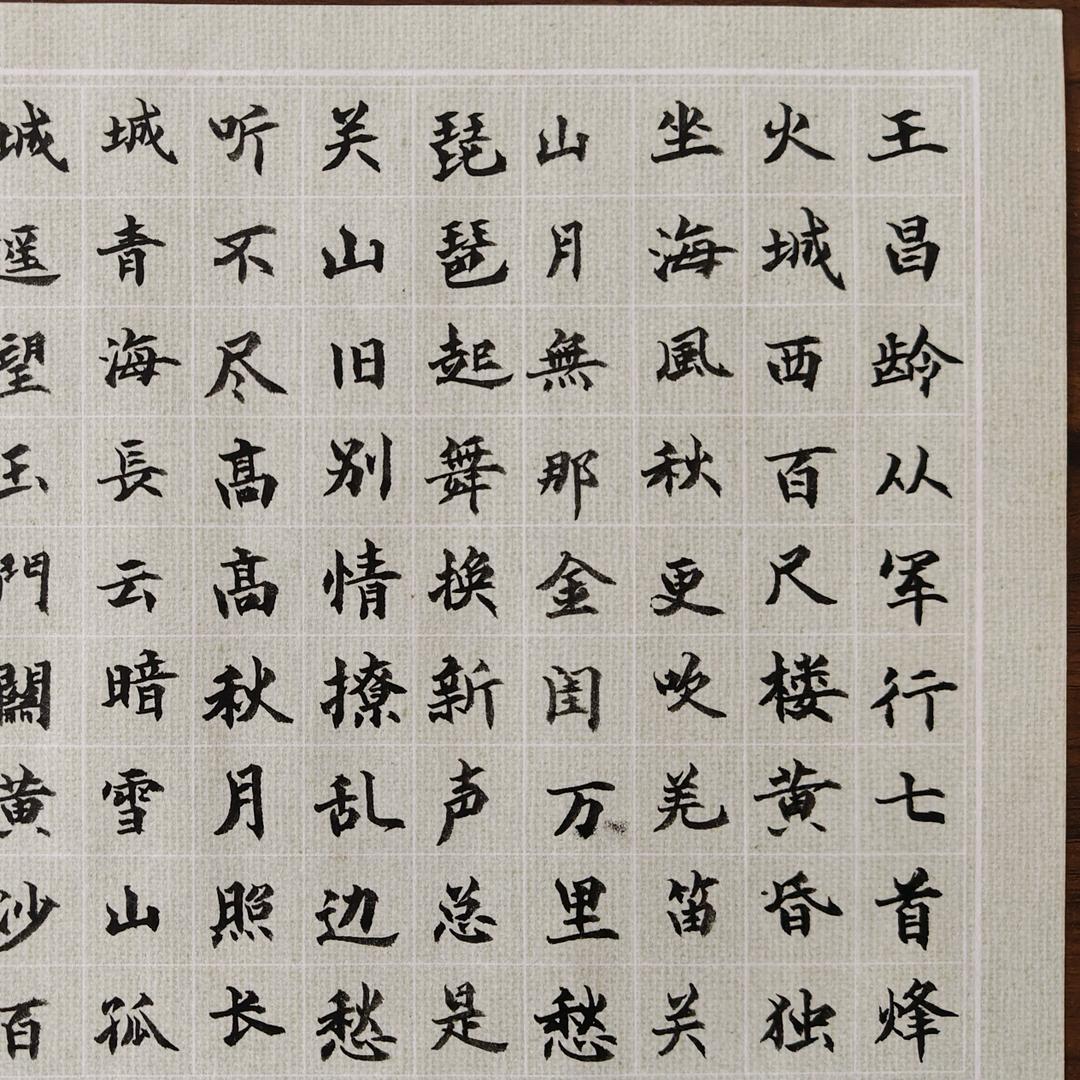 王昌龄从军行七首烽
火城西百尺楼黄昏独
坐海風秋更吹羌笛关
山月無那金闺万里愁
琵琶起舞换新声总是
关山旧别情撩乱边愁
听不尽高高秋月照长
城青海長云暗雪山孤
城遥望玉門關黄沙百